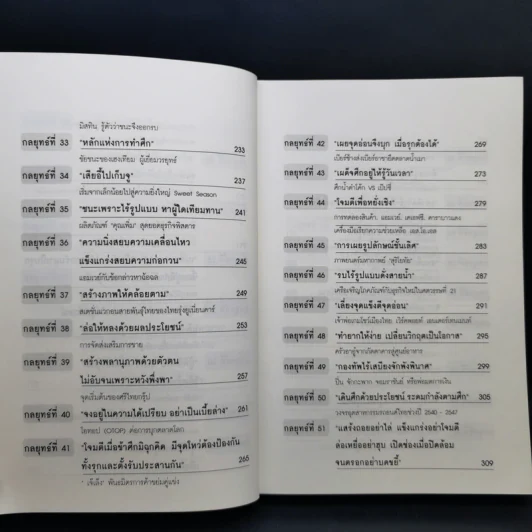 มิสทิน รู้ตัวว่าชนะจึงออกรบ
กลยุทธ์ที่ 33 "หลักแห่งการทำศึก" 233
ชัยชนะของเฮงเทียม ผู้เยี่ยมวรยุทธ์
กลยุทธ์ที่ 34 "เสียอี้ไปเก็บจู" 237
เริ่มจากเล็กน้อยไปสู่ความยิ่งใหญ่ Sweet Season
กลยุทธ์ที่ 35 "ชนะเพราะไร้รูปแบบ หาผู้ใดเทียมทาน" 241
ผลิตภัณฑ์ "คุณเพิ่ม" สุดยอดธุรกิจพิสดาร
กลยุทธ์ที่ 36 "ความนิ่งสยบความเคลื่อนไหว
แข็งแกร่งสยบความก่อกวน" 245
แอมเวย์กับข้อกล่าวหาฉ้อฉล
กลยุทธ์ที่ 37 "สร้างภาพให้คล้อยตาม" 249
สเตชั่นแวกอนสายพันธุ์ไทยของไทยรุ่งยูเนี่ยนคาร์
กลยุทธ์ที่ 38 "ล่อให้หลงด้วยผลประโยชน์" 253
การจัดส่งเสริมการขาย
กลยุทธ์ที่ 39 "สร้างพลานุภาพด้วยตัวตน
ไม่อับจนเพราะหวังพึ่งพา" 257
จุดเริ่มต้นของศรีไทยกรุ๊ป
กลยุทธ์ที่ 40 "จงอยู่ในความได้เปรียบ อย่าเป็นเบี้ยล่าง" 261
โอทอป (OTOP) ต่อการบุกตลาดโลก
กลยุทธ์ที่ 41 "โจมตีเมื่อข้าศึกมิฉุกคิด มีจุดโหว่ต้องป้องกัน
ทั้งรุกและตั้งรับประสานกัน" 265
"เจ๊เล้ง" พันธมิตรการค้าขย่มคู่แข่ง
กลยุทธ์ที่ 42 "เผยจุดอ่อนจึงบุก เมื่อรุกต้องได้" 269
เบียร์ช้างส่งเบียร์อาชายึดตลาดน้ำเมา
กลยุทธ์ที่ 43 "เผด็จศึกอยู่ให้รู้วันเวลา" 273
ศึกน้ำดำโค้ก VS เป๊ปซี่
กลยุทธ์ที่ 44 "โจมตีเพื่อหยั่งเชิง" 279
การทดลองสินค้า แอมเวย์ เคเอฟซี ดาราบาวแดง
เครื่องมือเรียกความช่วยเหลือ เอส.โอ.เอส
กลยุทธ์ที่ 45 "การเผยรูปลักษณ์ชั้นเลิศ" 283
ภาพยนตร์มหากาพย์ "สุริโยทัย"
กลยุทธ์ที่ 46 "รบไร้รูปแบบดั่งสายน้ำ" 287
เครือเจริญโภคภัณฑ์กับธุรกิจใหม่ในศตวรรษที่ 21
กลยุทธ์ที่ 47 "เลี่ยงจุดแข็งตีจุดอ่อน" 291
เจ้าพ่อเกมโชว์เมืองไทย เวิร์คพอยท์ เอนเตอร์เทนเมนท์
กลยุทธ์ที่ 48 "ทำยากให้ง่าย เปลี่ยนวิกฤตเป็นโอกาส" 295
ครัววุฒิจากภัตตาคารสู่ศูนย์อาหาร
กลยุทธ์ที่ 49 "กองทัพไร้เสบียงจักพังพินาศ" 299
ปิ่น จักกะพาก จอมราชันย์ หรือพ่อมดการเงิน
กลยุทธ์ที่ 50 "เดินศึกด้วยประโยชน์ ระดมกำลังตามศึก" 305
วงจรอุตสาหกรรมรถยนต์ไทยช่วงปี 2540 - 2547
กลยุทธ์ที่ 51 "แสร้งถอยอย่าไล่ แข็งแกร่งอย่าโจมตี
ล่อเหยื่ออย่าฮุบ เปิดช่องเมื่อปิดล้อม
จนตรอกอย่าบดขยี้" 309